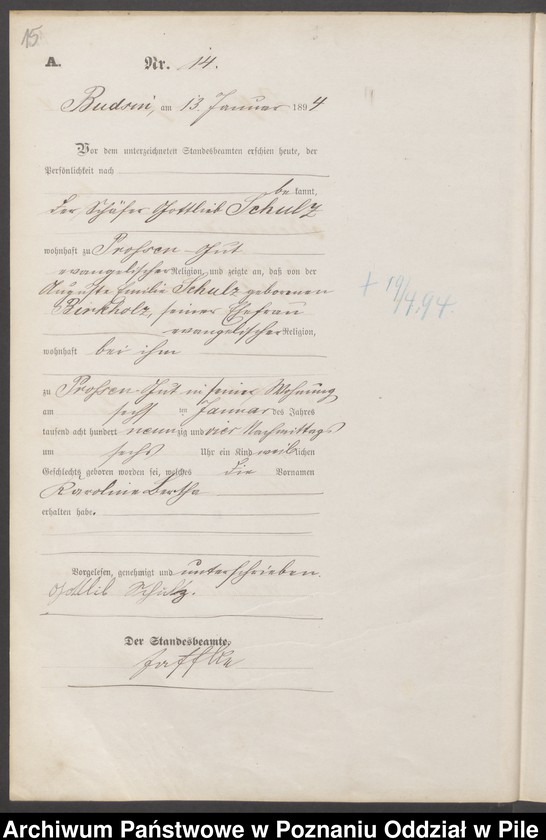 15
A.
Nr. 14.
Budsin, am 13. Januar 1894
Vor dem unterzeichneten Standesbeamten erschien heute, der
Persönlichkeit nach
be kannt,
der Schäfer Gottlieb Schulz
wohnhaft zu Prossen-Gut
evangelischer Religion, und zeigte an, daß von der
Auguste Emilie Schulz geborenen
Birkholz, seiner Ehefrau
evangelischer Religion,
wohnhaft bei ihm
zu Prossen-Gut in seiner Wohnung
am sechs ten Januar des Jahres
tausend acht hundert neunzig und vier Nachmittags
um sechs Uhr ein Kind weiblichen
Geschlechts geboren worden sei, welches die Vornamen
Karoline Bertha
erhalten habe.
Vorgelesen, genehmigt und unterschrieben.
Gottlieb Schulz.
Der Standesbeamte.
+ 19/4.94.
Archiwum Państwowe w Poznaniu Oddział w Pile